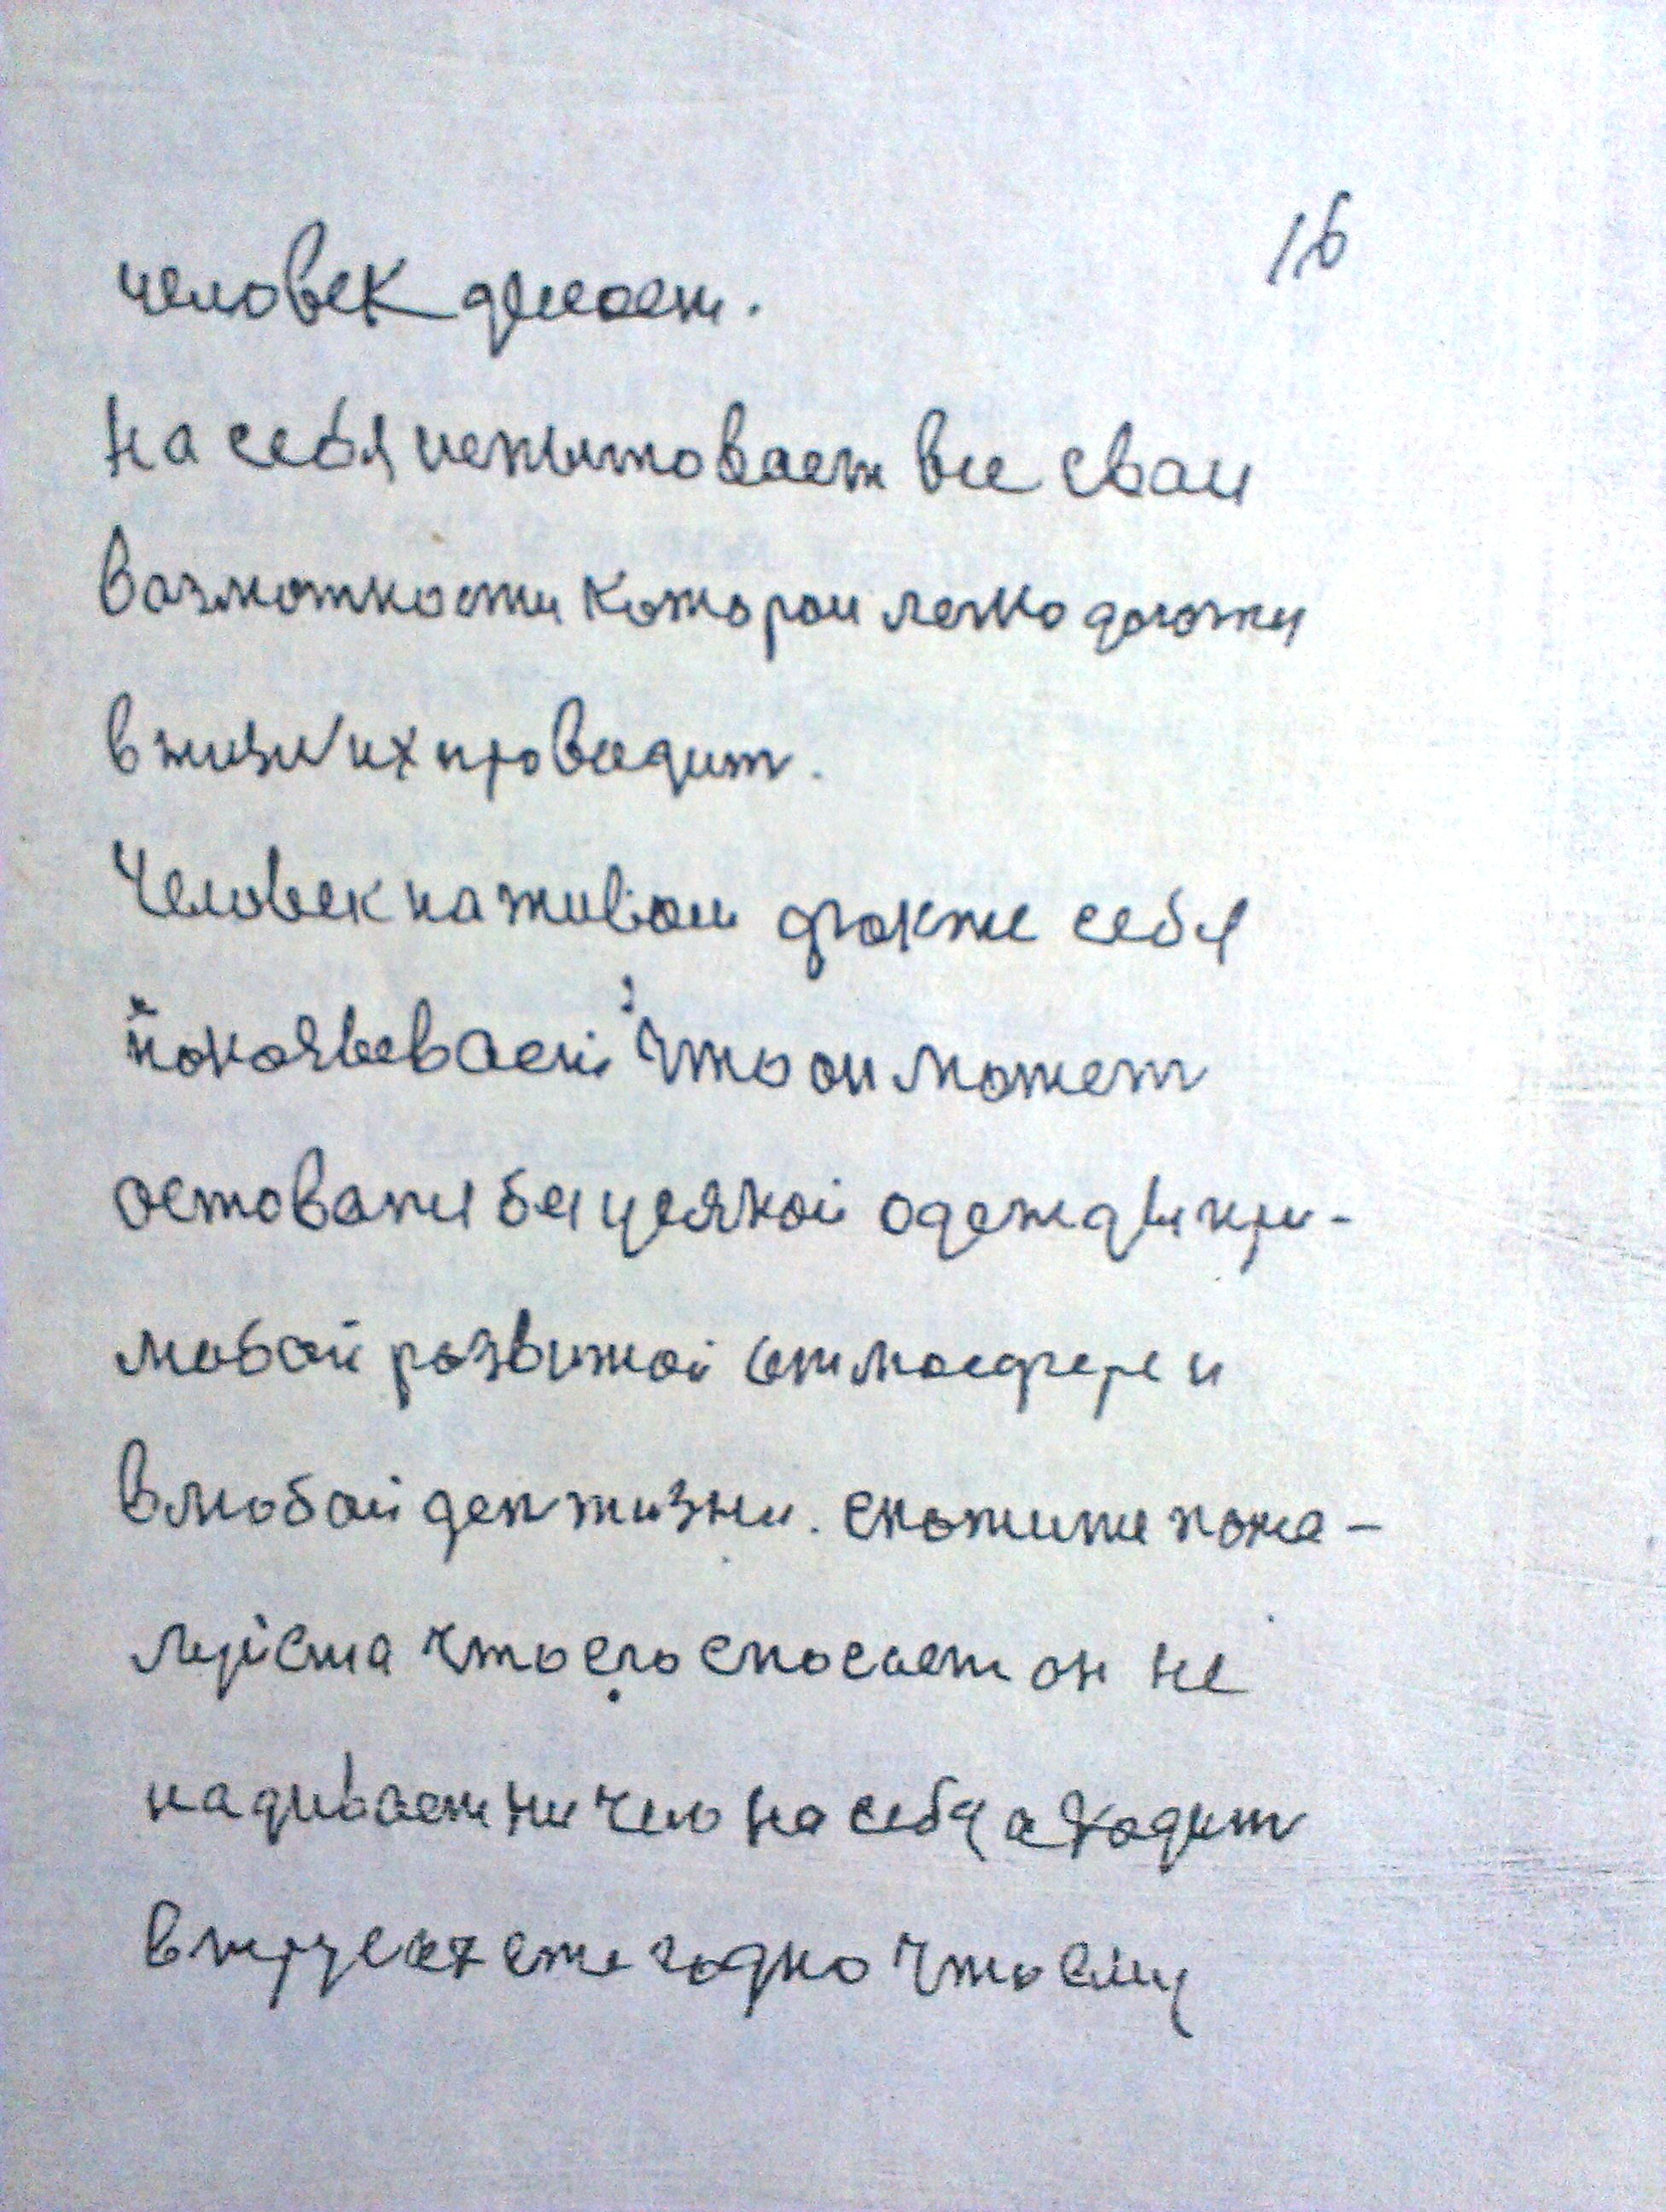 16
человек делоет.
на себя испытовает все сваи
возмотности которои легко
в жизни их проводит.
Человек на живом факте себя
показевает что он может
остоватся без усякой одежды при-
любой развитой атмосфере и
в любой ден жизни. скожите пожа-
луйста что его спосает он не
надивает ни чего на себя а ходит
в трусах ежегодно что ему